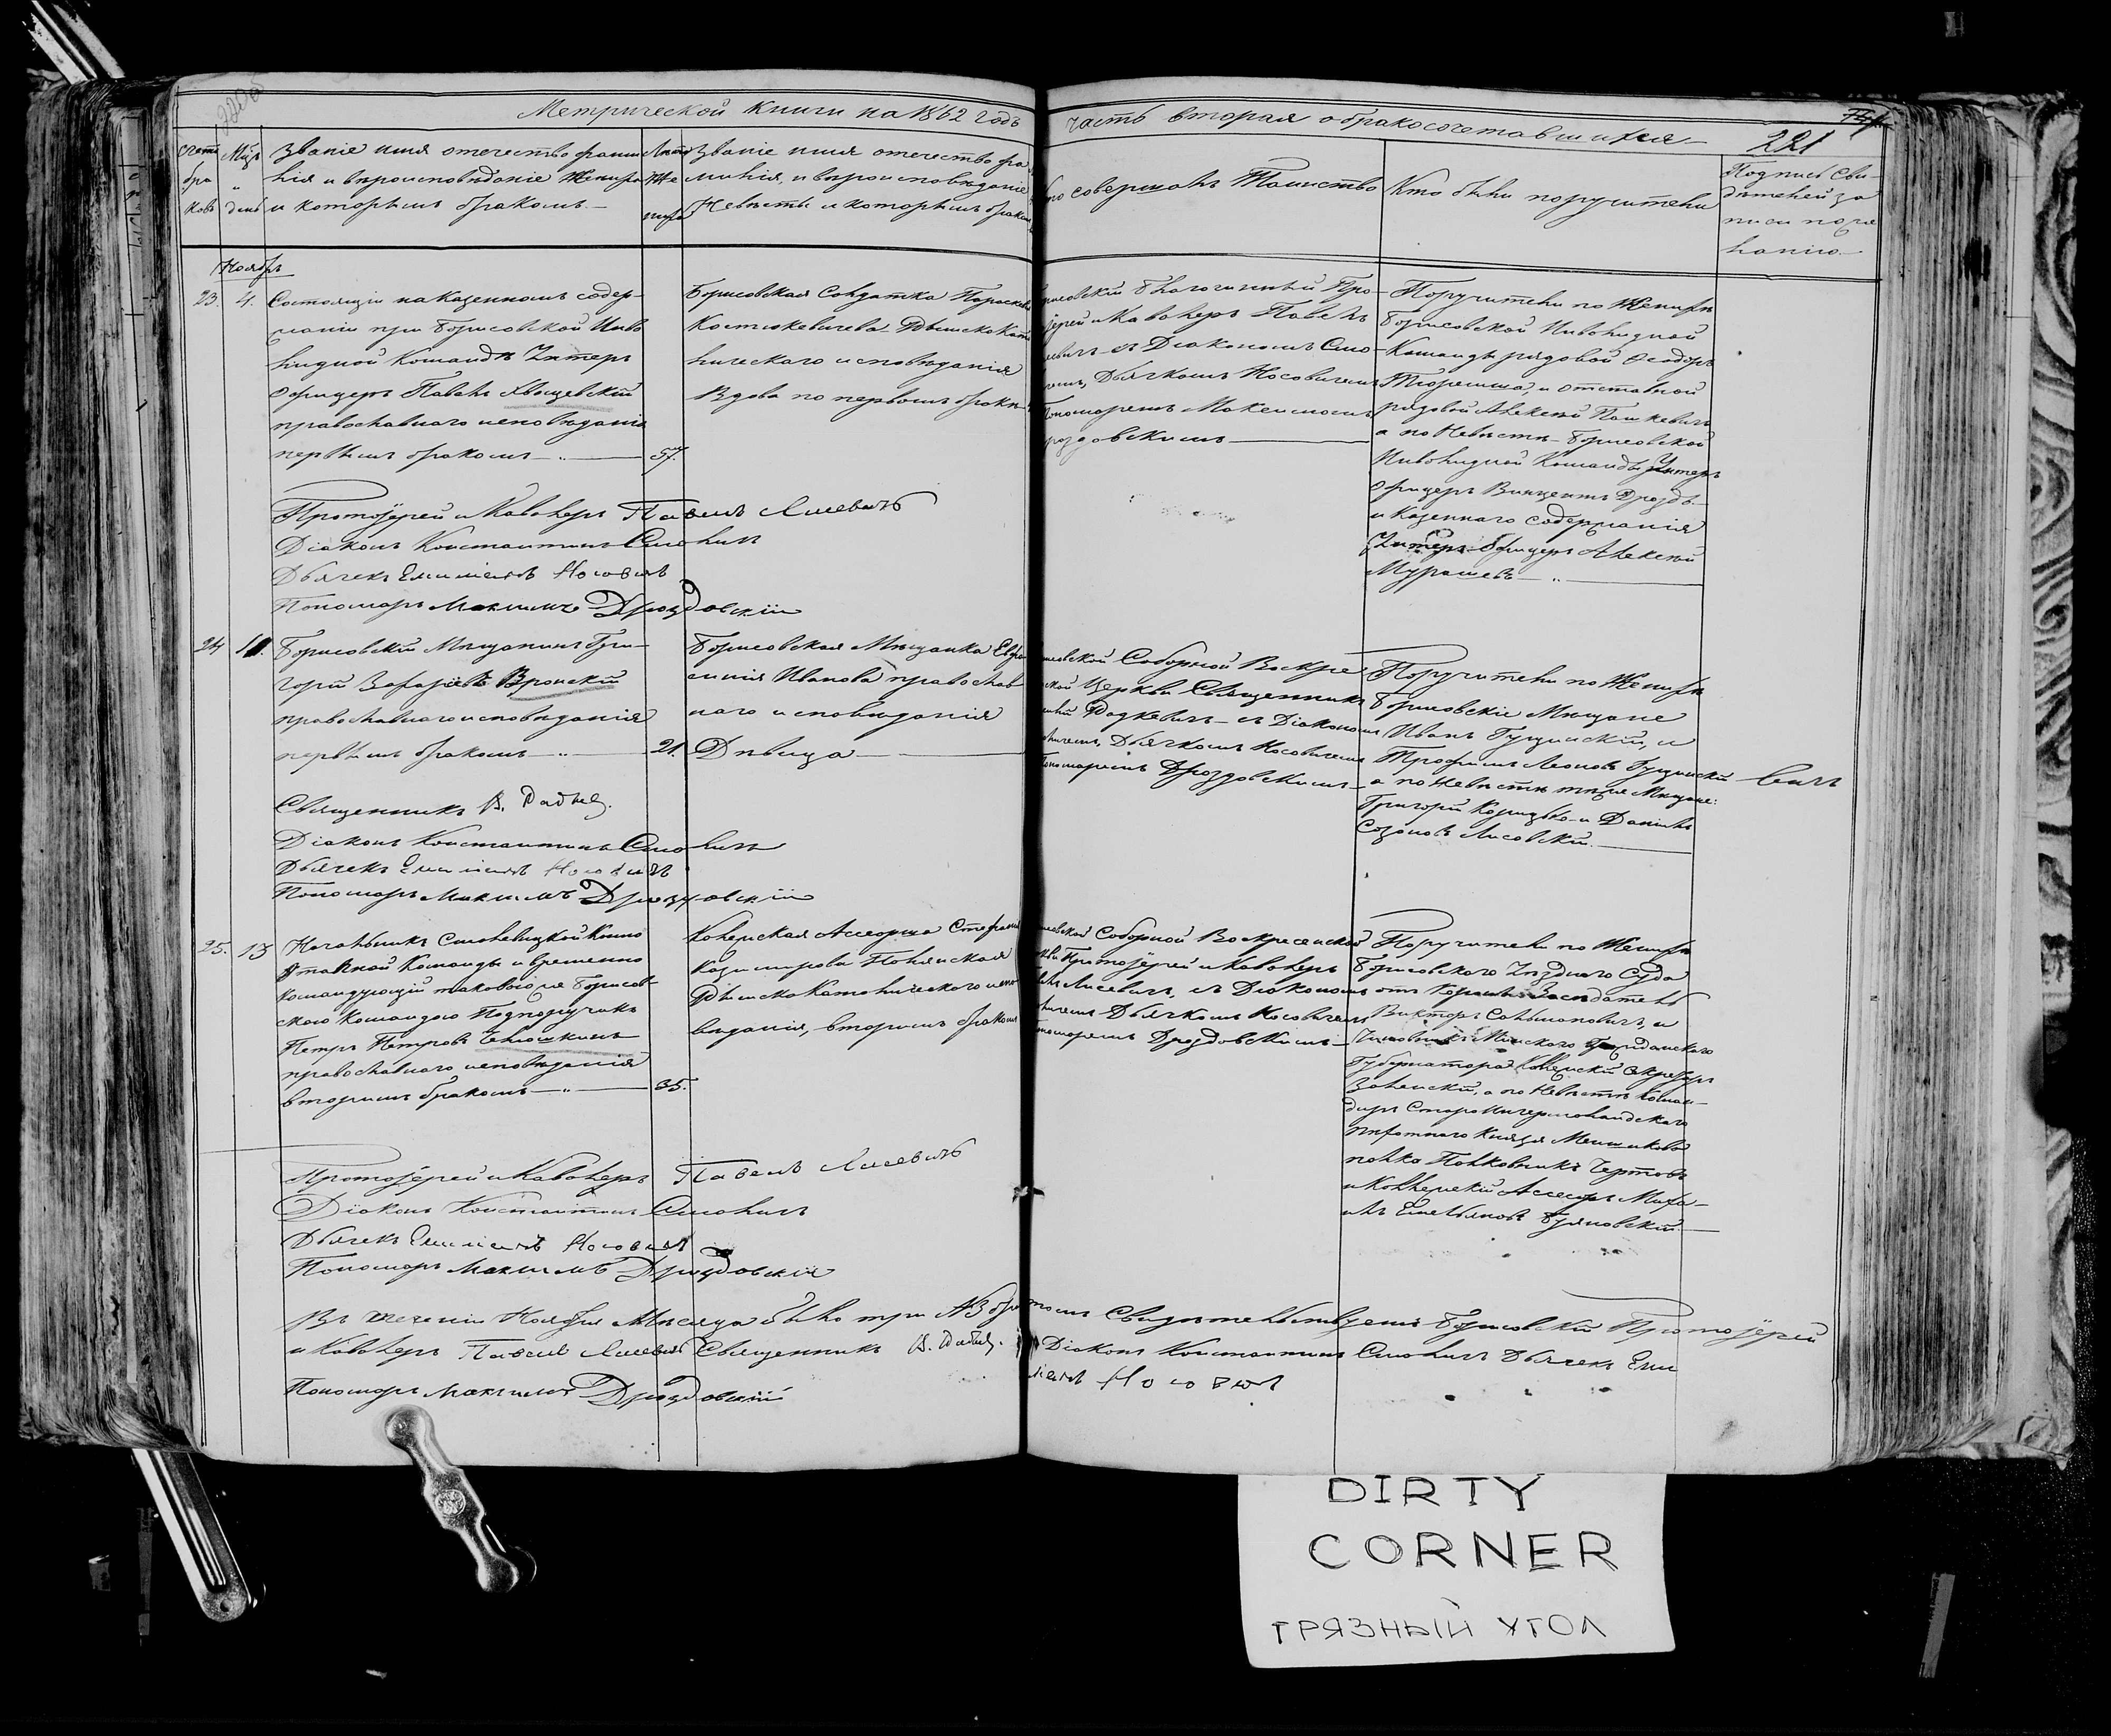 Метрической книги на 1862 годъ часть вторая о бракосочетавшихся
221
счетъ бра ковъ
Мцъ " день
Званіе имя отечество фами
лія и вѣроисповѣданіе Жениха
и которымъ бракомъ
Лѣта Же ниха
Званіе имя отечество фа
милія, и вѣроисповѣданіе
Невѣсты и которымъ бракомъ
то совершалъ Таинство
Кто были поручители
Подпись Сви-
дѣтелей за
писи по же
ланію
Ноябрь
23. 4.
Состоящій на казенномъ содер-
жаніи при Борисовской Инва
лидной Командѣ Унтеръ
Офицеръ Павелъ
православнаго исповѣданія
первымъ бракомъ — " — 57.
Борисовская Солдатка Параскева
Костюкевичева Римско Като
лическаго исповѣданія
Вдова по первомъ бракѣ
рисовскій Благочинный Про-
іерей и Кавалеръ Павелъ
севичъ съ Діакономъ Смо-
Дьячкомъ Носовичемъ
Пономаремъ Максимомъ
роздовскимъ
Поручители по Женихѣ
Борисовской Инвалидной
Команды рядовой Ѳеодоръ
и отставной
рядовой Алексѣй Пашкевичъ
а по Невѣстѣ Борисовской
Инвалидной Команды Унтеръ
Офицеръ Викентій Дроздъ
и Казеннаго содержанія
Унтеръ-Офицеръ Алексѣй
Мурашевъ — "
Протоіерей и Кавалеръ Павелъ Лисевичъ
Діаконъ Константинъ Смоличъ
Дьячекъ Емиліанъ Носовичъ
Пономарь Максимъ Дроздовскій
24
Борисовскій Мѣщанинъ Гри-
горій Захаріевъ Вронскій
православнаго исповѣданія
первымъ бракомъ — " — 21.
Борисовская Мѣщанка Евфро
синія Иванова православ
наго исповѣданія
Дѣвица
исовской Соборной Воскре
ской Церкви Священникъ
Радкевичъ съ Діакономъ
оличемъ, Дьячкомъ Носовичемъ
Пономаремъ Дроздовскимъ
Поручители по Женихѣ
Борисовскіе Мѣщане
Иванъ Гущинскій, и
Трофимъ Леоновъ Гущинскій
а по Невѣстѣ тѣже Мѣщане:
Григорій и Даніилъ
Созоновъ Лисовскій
Священникъ В.
Діаконъ Константинъ Смоличъ
Дьячекъ Емиліанъ Носовичъ
Пономарь Максимъ Дроздовскій
25. 13
Начальникъ Смолевицкой Конно
Этапной Команды и временно
командующій таковою же Борисов-
скою Командою Подпоручикъ
Петръ Петровъ
православнаго исповѣданія
вторымъ бракомъ — " — 35.
Ассесорша Стефанія
Казимирова
Римско Католическаго испо
вѣданія, вторымъ бракомъ
исовской Соборной Воскресенской
кви Протоіерей и Кавалеръ
Лисевичъ, съ Діакономъ
оличемъ Дьячкомъ Носовичемъ
ономаремъ Дроздовскимъ
Поручители по Женихѣ
Борисовскаго Уѣзднаго Суда
отъ Короны Засѣдатель
Викторъ и
Чиновникъ Минскаго Гражданскаго
Губернатора Коллежскій Секретарь
а по Невѣстѣ Коман-
диръ Староингерманландскаго
пѣхотнаго Князя Меншикова
полка Полковникъ Чертовъ
и Коллежскій Ассесоръ Миха-
илъ Емельяновъ
Протоіерей и Кавалеръ Павелъ Лисевичъ
Діаконъ Константинъ Смоличъ
Дьячекъ Емиліанъ Носовичъ
Пономарь Максимъ Дроздовскій
Въ теченіи Ноября Мѣсяца было три №3 бра томъ Свидѣтельствуемъ Борисовскій Протоіерей
и Кавалеръ Павелъ Лисевичъ Священникъ В. Діаконъ Константинъ Смоличъ Дьячекъ Еми
ліанъ Носовичъ
Пономарь Максимъ Дроздовскій
DIRTY
CORNER
ГРЯЗНЫЙ УГОЛ